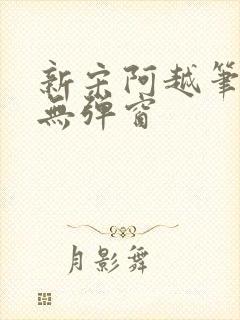 新宋阿越筆
無彈窗
月影舞